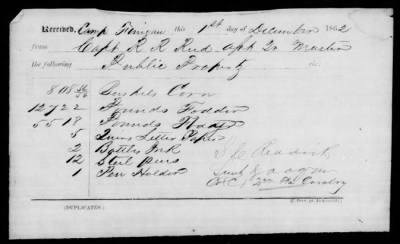 Received, Camp Finegan this 1st day of December 1862
from Capt R R Reid Asst Qr Master
the following Public Property viz.
808 Bushels Corn
12722 Pounds Fodder
5518 Pounds
5 Quires Letter Paper
2 Bottles Ink
12 Steel Pens
1 Pen Holder
Lieut & a a q m
Co C 2nd Fla Cavalry
(DUPLICATES.)